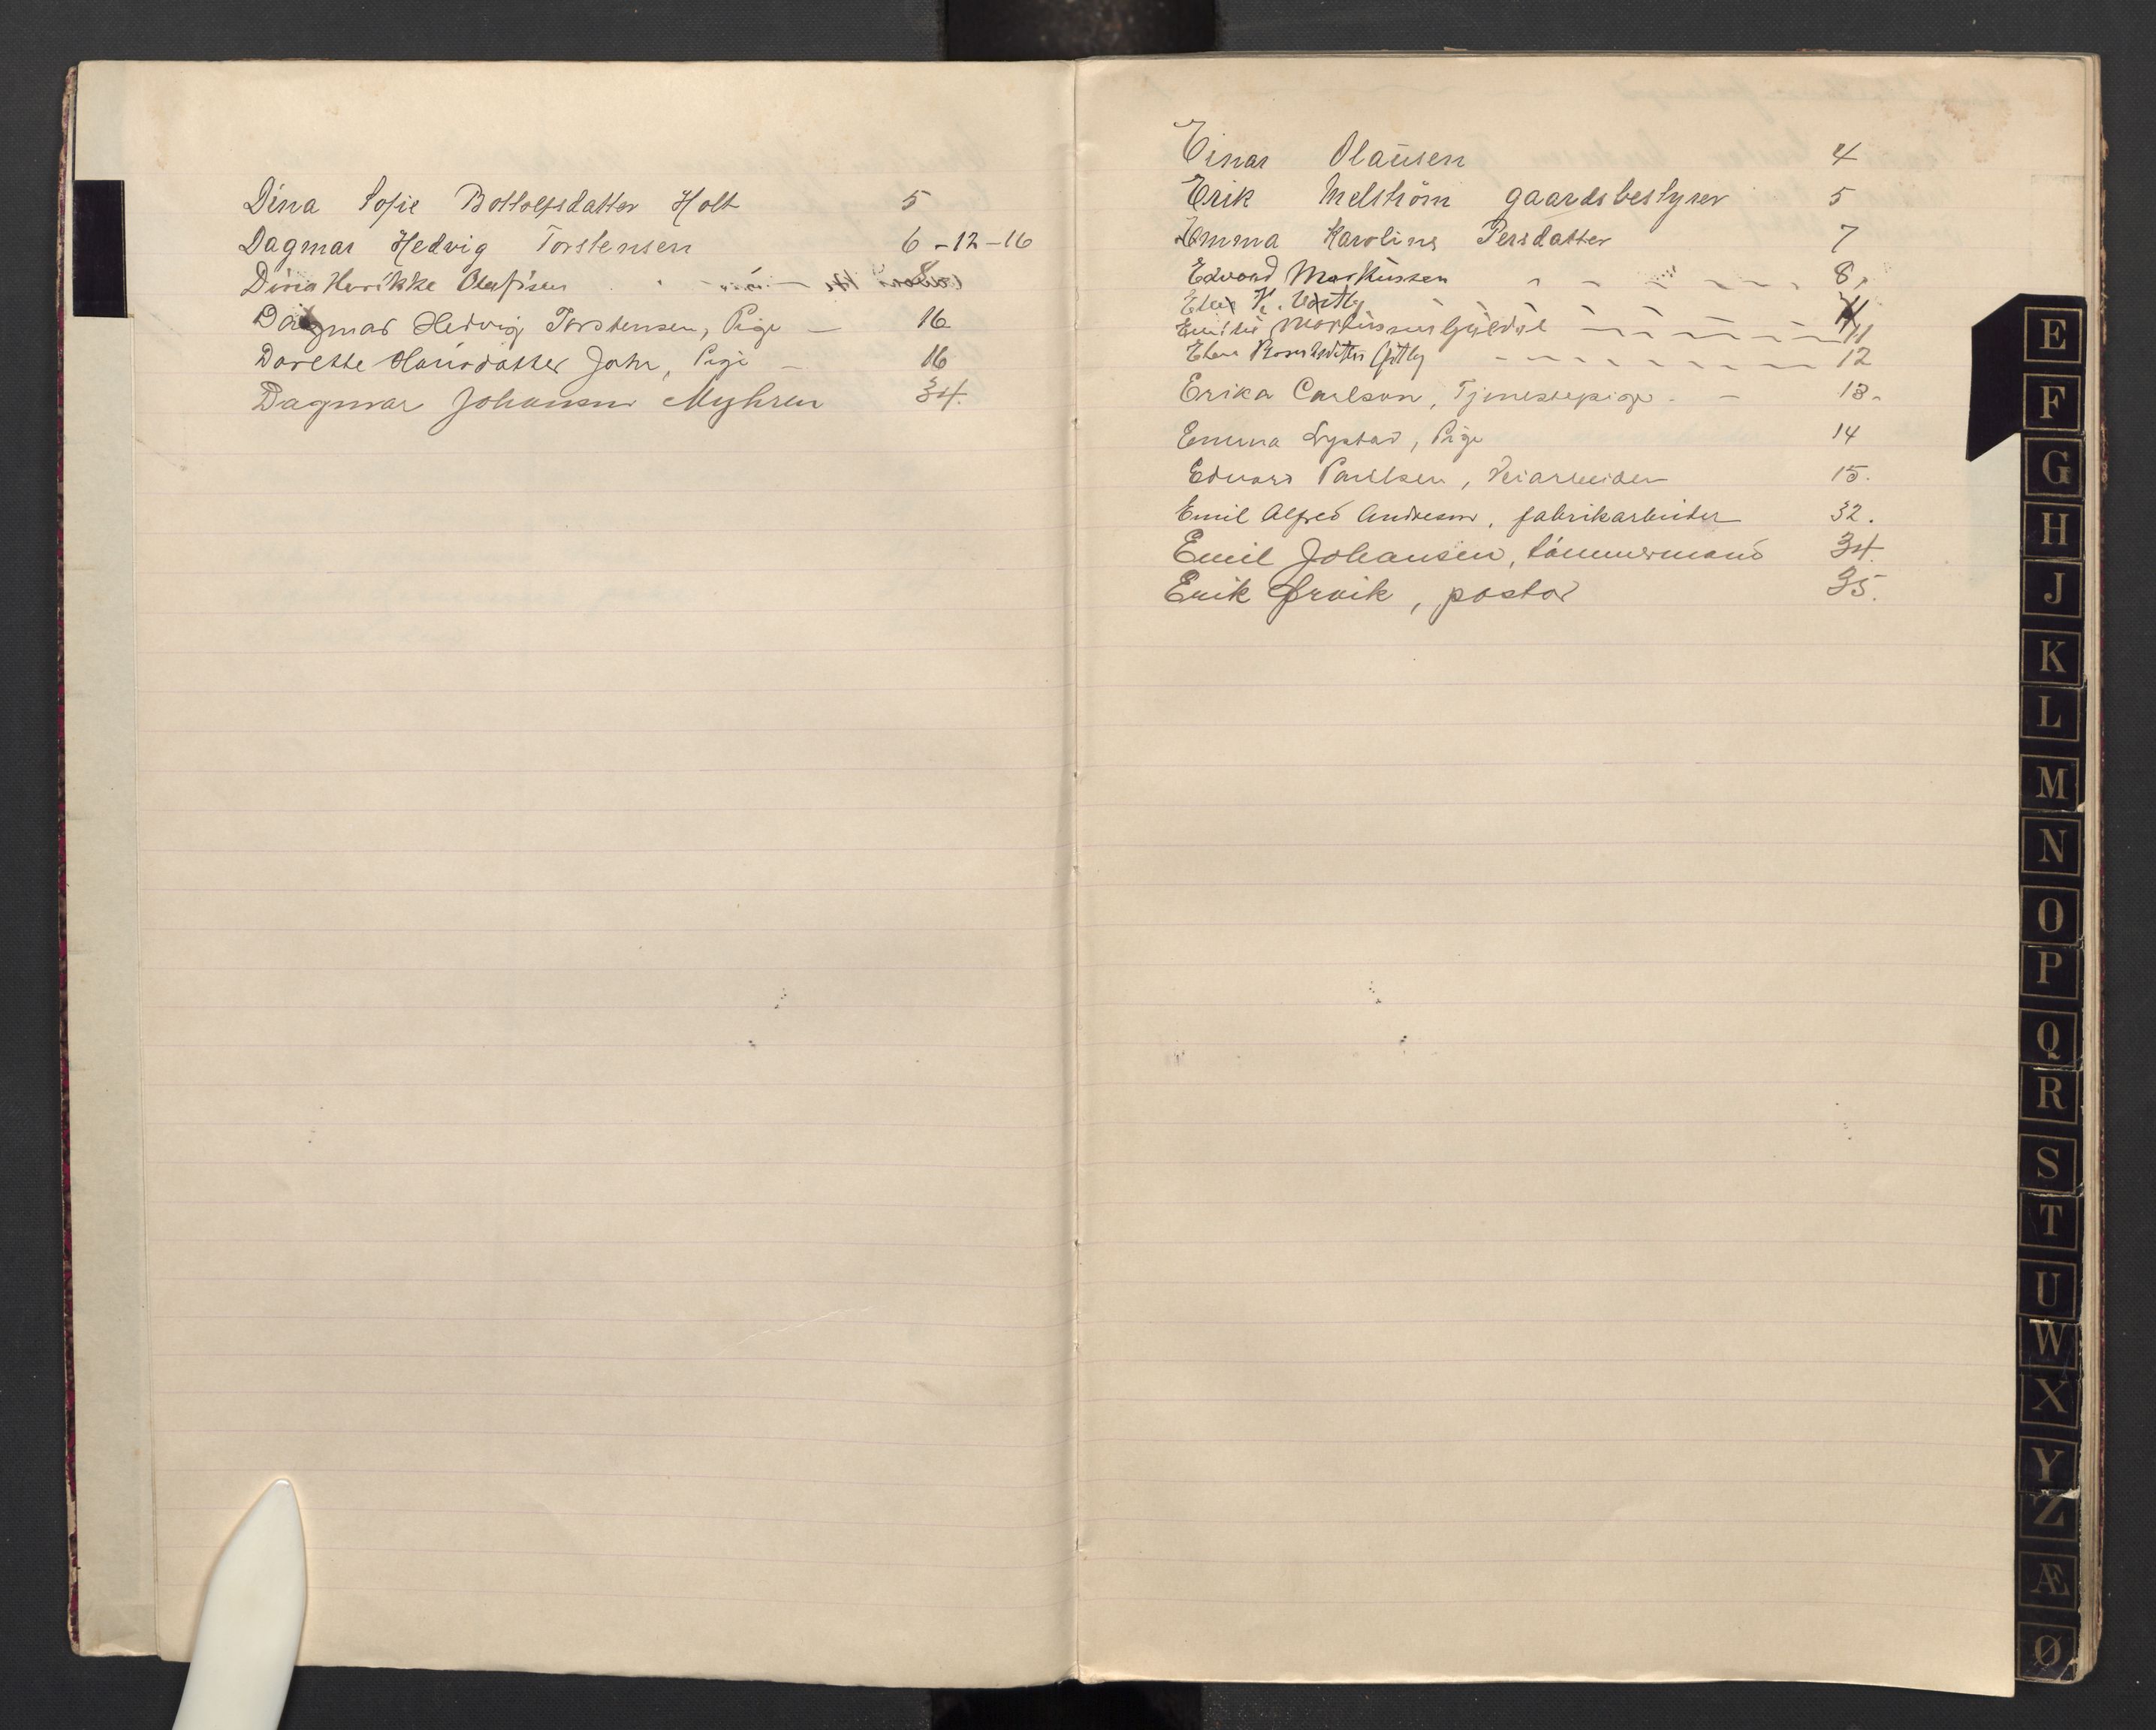 Dina Sofie Bottolfsdatter Holt 5
Dagmar Hedvig Torstensen 6-12-16
Dina Henrikke Olafsen 8
Dagmar Hedvig Torstensen, Pige — 16
Dorette Hansdatter Jahr, Pige — 16
Dagmar Johansen Myhren 34.
Einar Olausen 4
Erik Melström gaardsbestyrer 5
Emma Karoline Persdatter 7
Edvard Markussen 8,
K. 11
Emilie 11
12
Erika Carlson, Tjenestepige - — 13.
Emma Lystad, Pige 14
Edvard Paulsen, Veiarbeider 15.
Emil Alfred Andresen, fabrikarbeider 32.
Emil Johansen, tömmermand 34.
Erik Ørvik, pastor 35.
E
F
G
H
J
K
L
M
N
O
P
Q
R
S
T
U
W
X
Y
Z
Æ
Ø